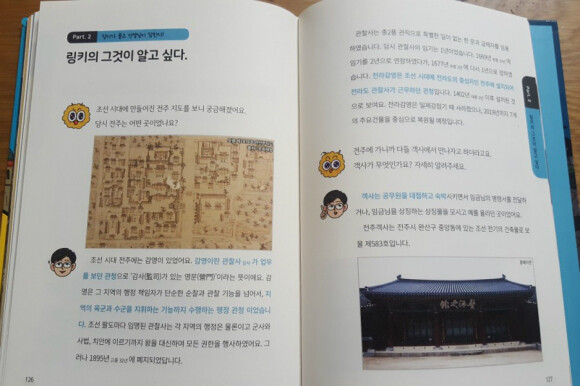 Part. 2
링키의 그것이 알고 싶다.
조선 시대에 만들어진 전주 지도를 보니 궁금해졌어요.
당시 전주는 어떤 곳이었나요?
조선 시대 전주에는 감영이 있었어요. 감영이란 관찰사 가 업무
를 보던 관청으로 '감사(監司)가 있는 영문(營門)'이라는 뜻이에요. 감
영은 그 지역의 행정 책임자가 단순한 순찰과 관찰 기능을 넘어서, 지
역의 육군과 수군을 지휘하는 기능까지 수행하는 행정 관청 이었습니
다. 조선 팔도마다 임명된 관찰사는 각 지역의 행정은 물론이고 군사와
사법, 치안에 이르기까지 왕을 대신하여 모든 권한을 행사하였어요. 그
러나 1895년 에 폐지되었답니다.
126
관찰사는 종2품 관직으로 특별한 일이 없는 한 문과 급제자를 임용
하였습니다. 당시 관찰사의 임기는 1년이었습니다.
임기를 2년으로 연장하였다가, 에 다시 1년으로 정하였
습니다. 전라감영은 조선 시대에 전라도의 중심지인 전주에 설치되어
전라도 관찰사가 근무하던 관청입니다. 이후 설치된 것
으로 보여요. 전라감영은 일제강점기 때 사라졌으나, 2019년까지 7개
의 주요건물을 중심으로 복원될 예정입니다.
Part. 2
전주에 가니까 다들 객사에서 만나자고 하더라고요.
객사가 무엇인가요? 자세히 알려주세요.
객사는 공무원을 대접하고 숙박시키면서 임금님의 명령서를 전달하
거나, 임금님을 상징하는 상징물을 모시고 예를 올리던 곳이었어요.
전주객사는 전주시 완산구 중앙동에 있는 조선 전기의 건축물로 보
물 제583호입니다.
127